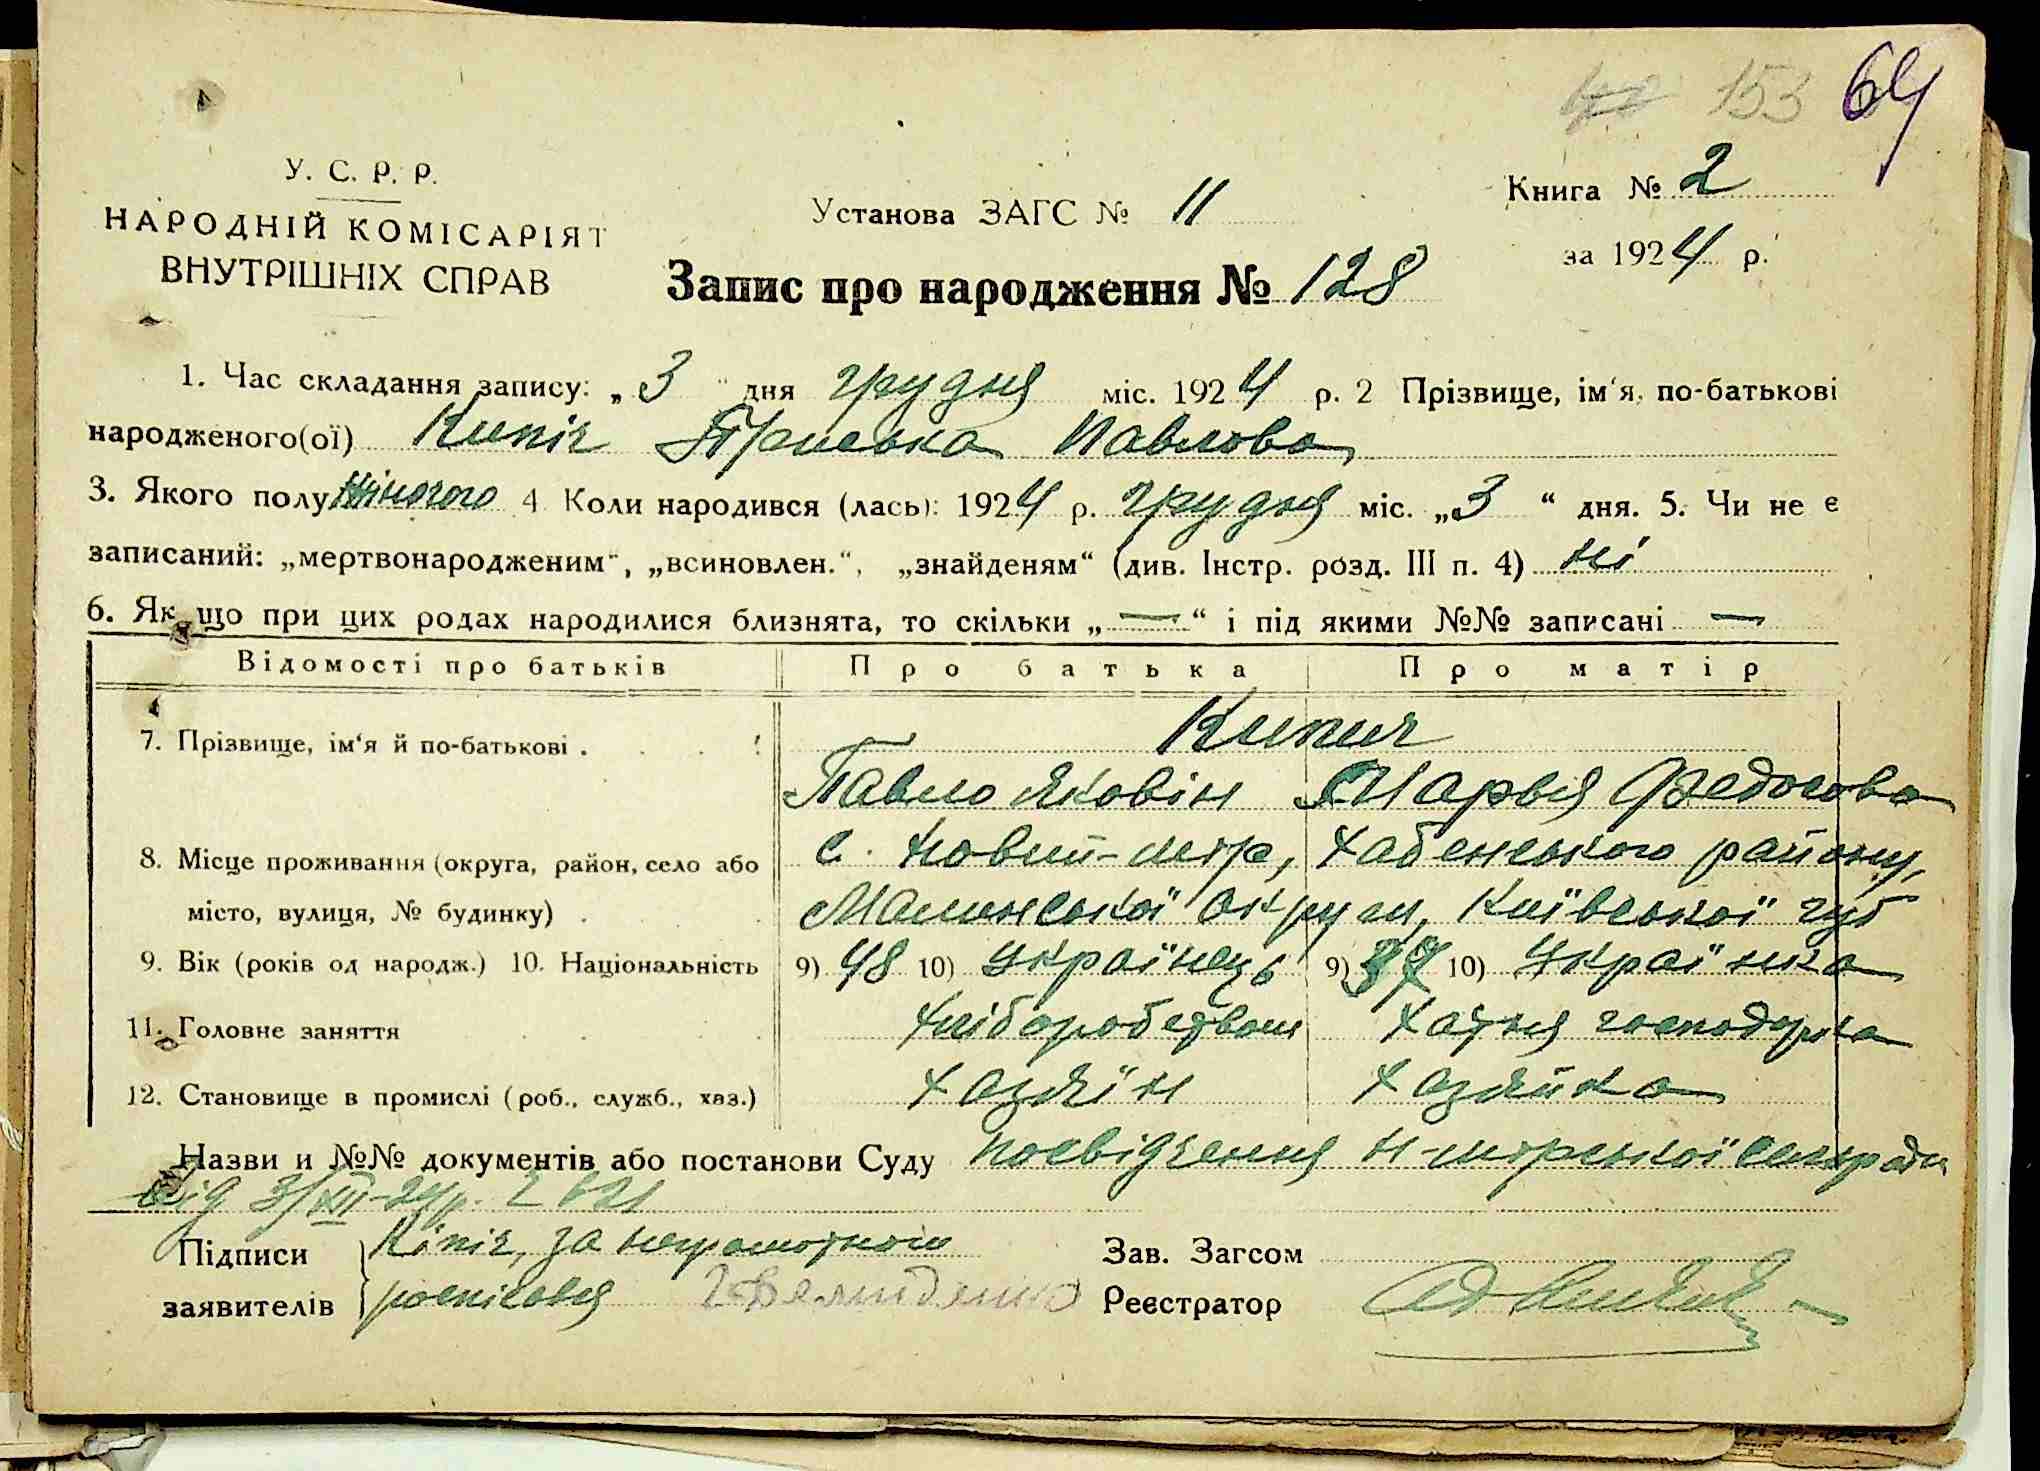 153 69
У. С. Р. Р.
НАРОДНІЙ КОМІСАРІЯТ
ВНУТРІШНІХ СПРАВ
Установа ЗАГС № 11
Книга № 2
за 1924 р.
Запис про народження № 128
1. Час складання запису: „3" дня грудня міс. 1924 р. 2 Прізвище, ім'я, по-батькові
народженого(ої) Кипіч Павлова
3. Якого полу Жіночого 4 Коли народився (лась): 1924 р. грудня міс. „3 “ дня. 5. Чи не є
записаний: „мертвонародженим", „всиновлен.“, „знайденям“ (див. Інстр. розд. III п. 4) ні
6. Як що при цих родах народилися близнята, то скільки „ — “ і під якими №№ записані —
Відомості про батьків Про батька Про матір
7. Прізвище, ім'я й по-батькові . Кипич
Павло Яковін Марья Федосова
8. Місце проживання (округа, район, село або с. Новий-мир, Хабенського району,
місто, вулиця, № будинку) . Малинської округи, Київської губ
9. Вік (років од народж.) 10. Національність 9) 48 10) Українець 9) 37 10) Українка
11. Головне заняття хліборобством хатня господарка
12. Становище в промислі (роб., служб., хаз.) хазяїн хазяйка
Назви и №№ документів або постанови Суду посвідчення Н-мирської сельради
від 3/XII-24р.
Підписи Кіпіч, за неграмотного
заявителів росписовся
Зав. Загсом
Реєстратор